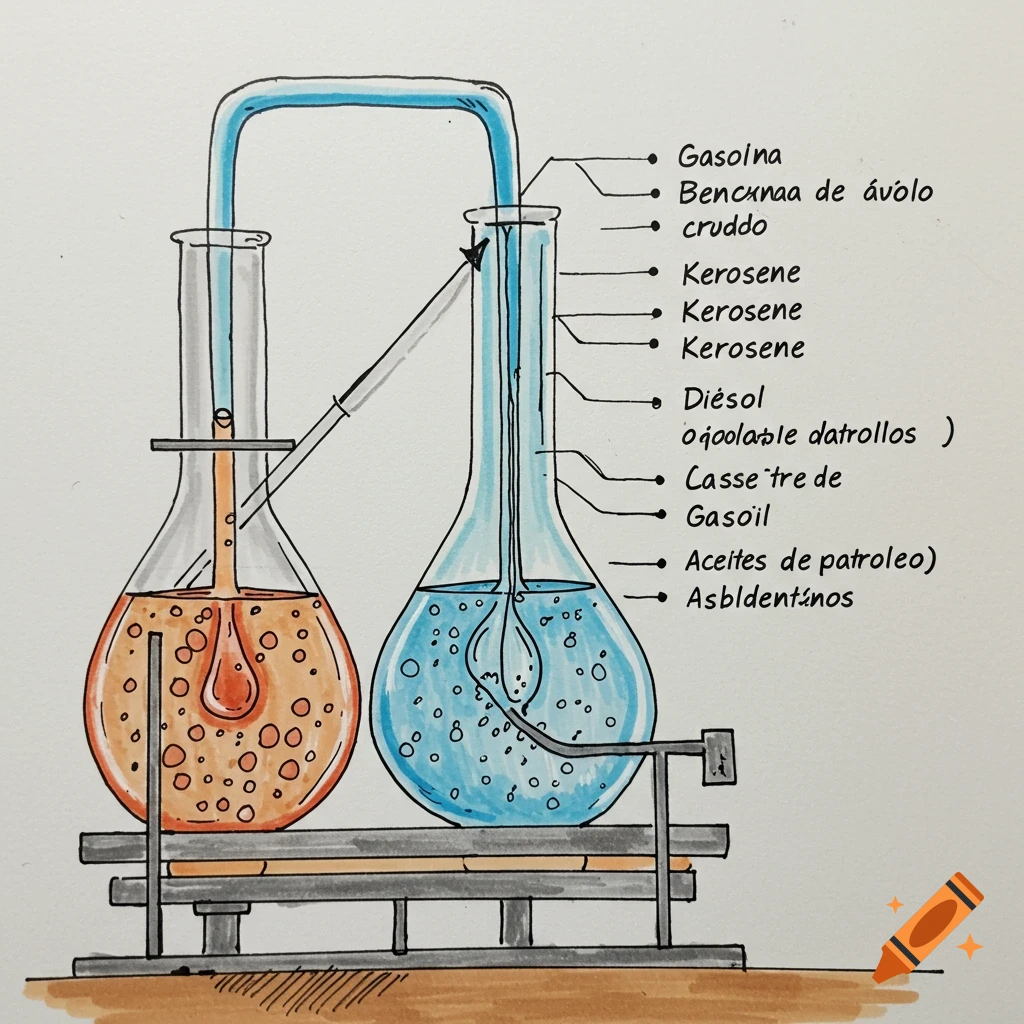 Gasolna
Bencxnaa de ávolo
cruddo
Kerosene
Kerosene
Kerosene
Diésol
datrollos )
Casse tre de
Gasoïl
Aceites de patroleo)
Asbldentínos